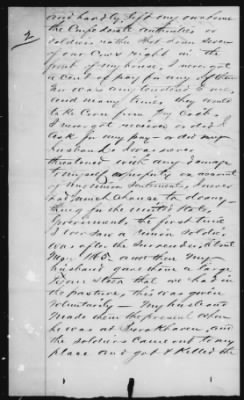 2
and hardly left my our home
the Confederate authorities
soldiers rather shot down seven
of our Cows right in the
front of my house, I never got
a cent of pay for any of them
and many times they would
take Corn from my Crib.
I never got receipt or did I
ask for any pay or did my
husband I was never
threatened with any damage
to myself or property on account
of my union Sentiments, I never
had much chance to do any
thing for the United States
Government, the first time
I ever saw a Union soldier
was after the Surrender, about
May 1865 and then my
husband gave them a large
that we had in
the pasture, this was given
voluntarily. My husband
made them the present when
he was at Brookhaven, and
the soldiers came out to my
place and got & killed the